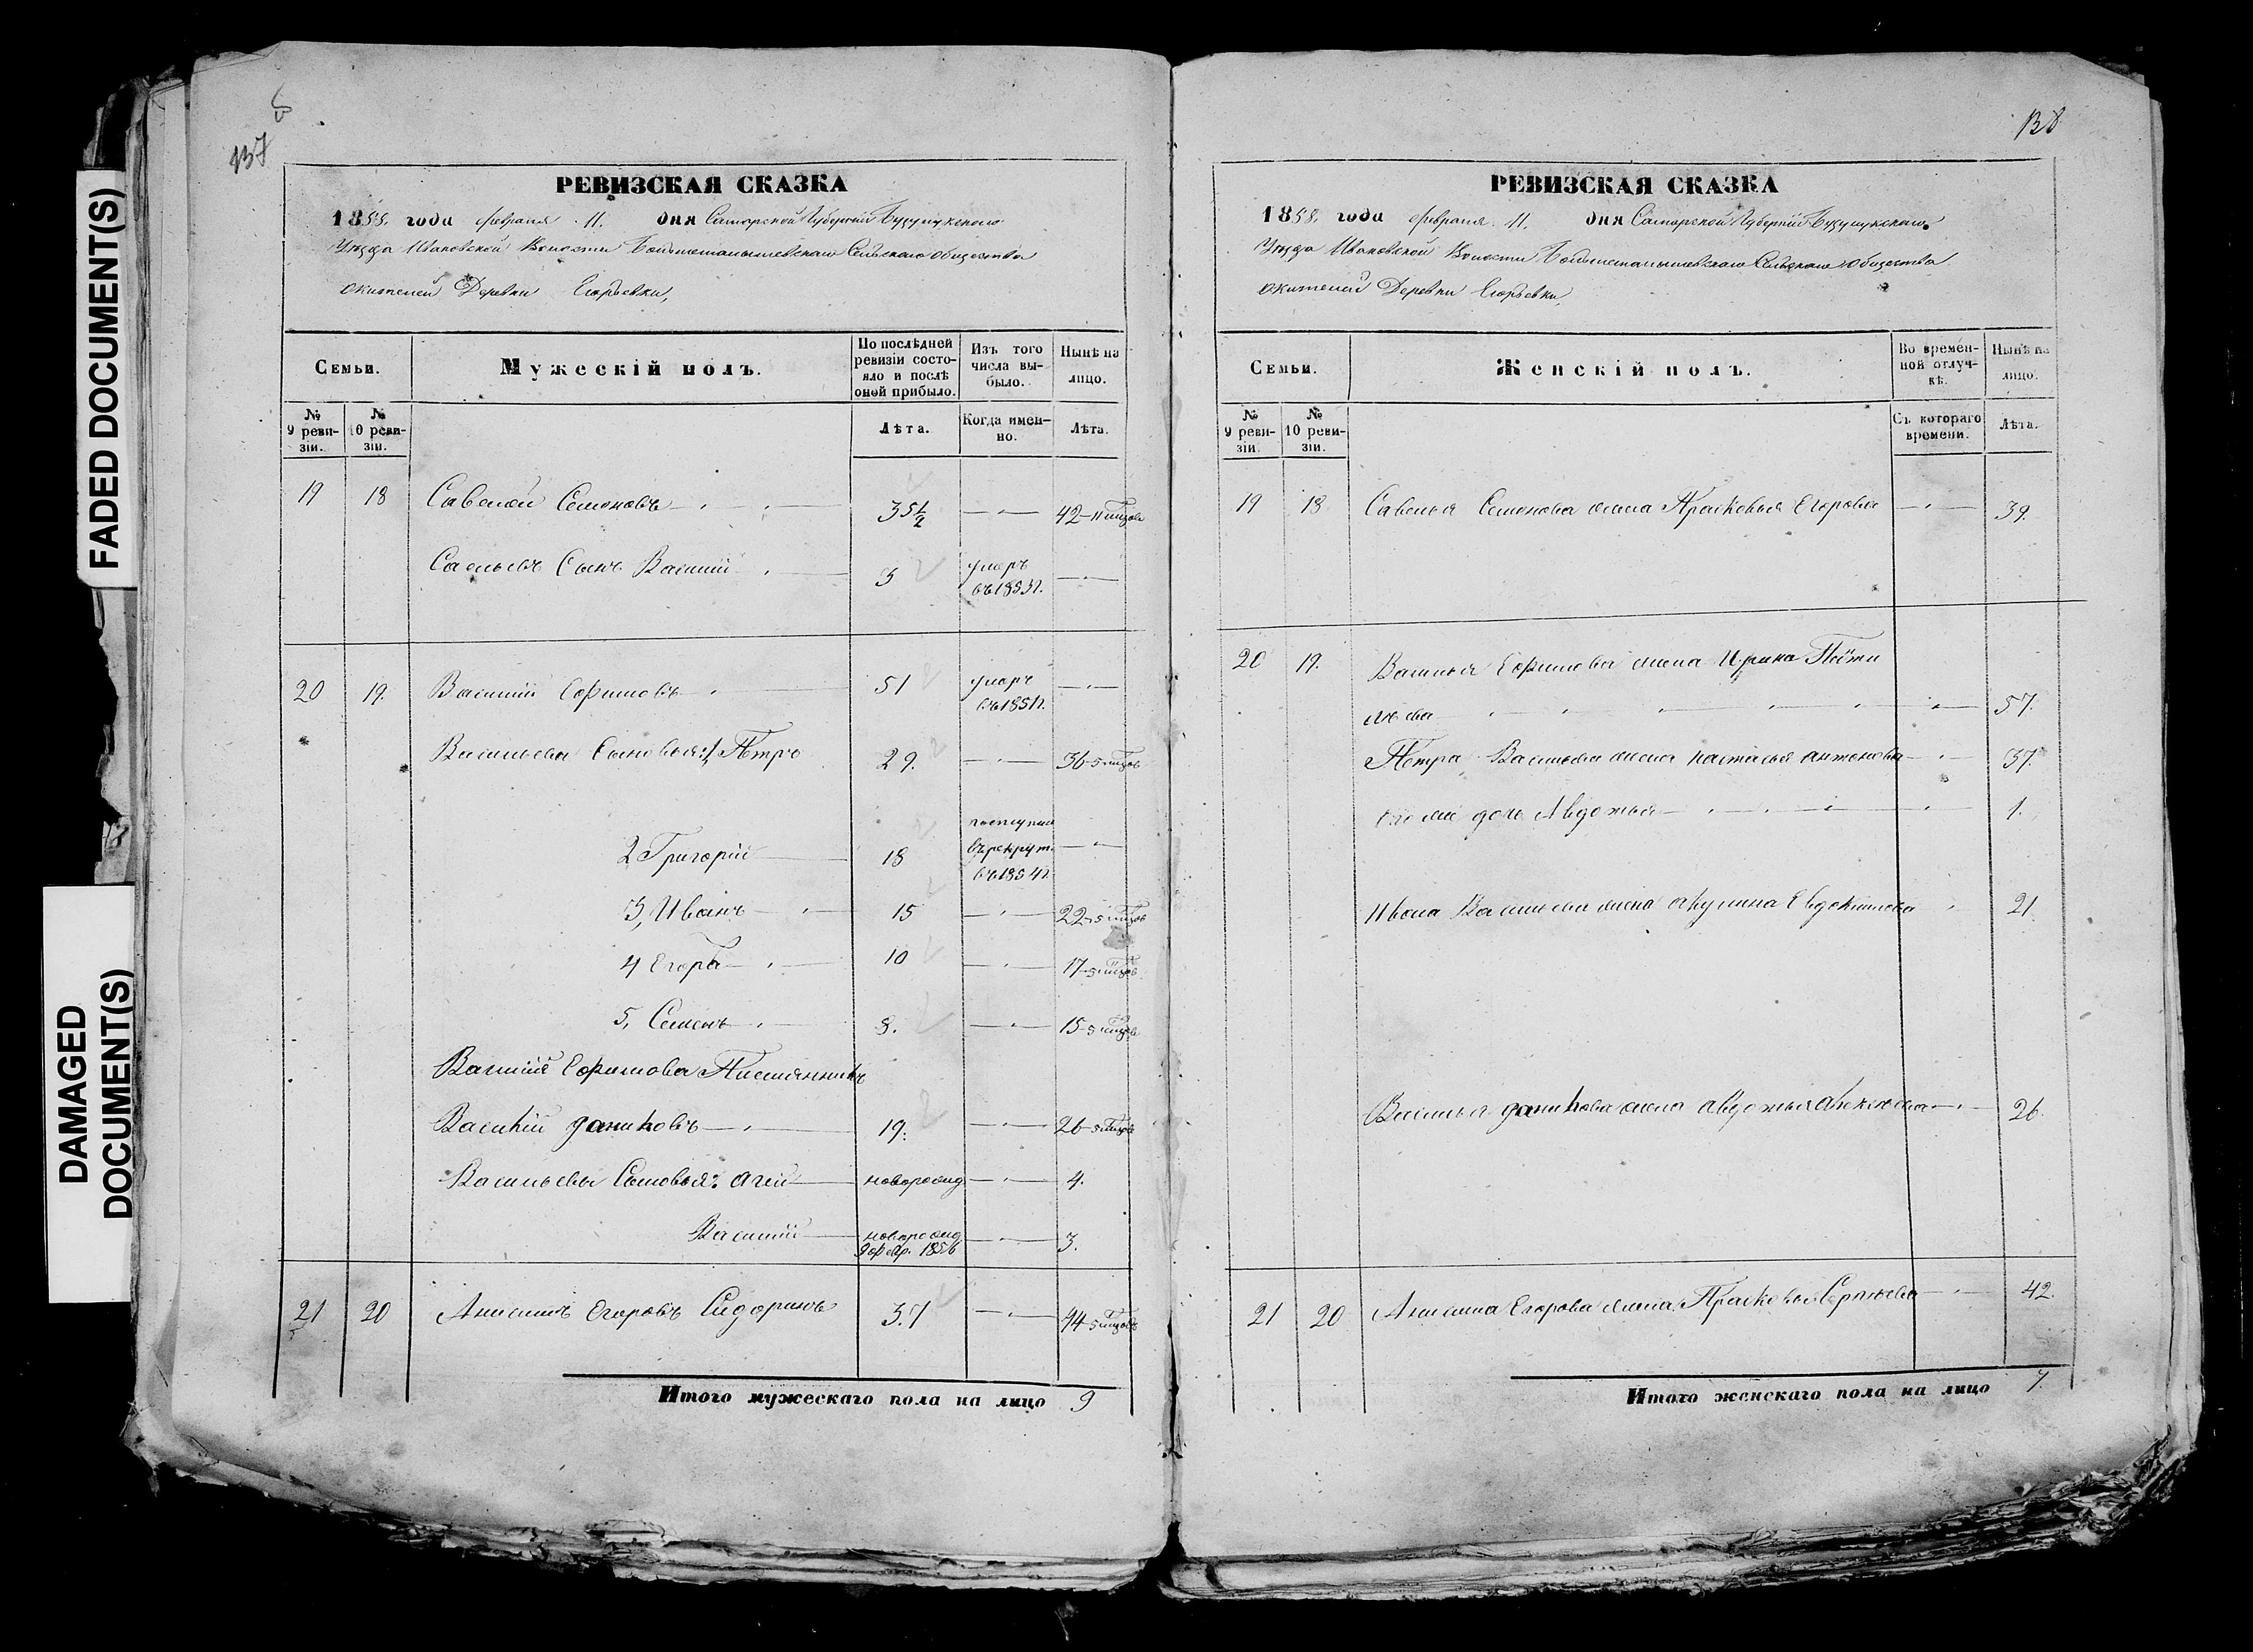 137
РЕВИЗСКАЯ СКАЗКА
1858. года февраля 11. дня Самарской Губерніи Бузулукскаго
Уѣзда Ивановской Волости Сельскаго общества
жителей Деревни Егорьевки,
Семьи.
Мужескій полъ.
По послѣдней ревизіи состояло и послѣ оной прибыло.
Изъ того числа выбыло.
Нынѣ на лицо.
№ 9 ревизіи.
№ 10 ревизіи.
Лѣта.
Когда именно.
Лѣта.
19 18 Савелей Семеновъ 35½ 42
Савельевъ Сынъ Василій 5 умеръ
20 19. Василій Ефимовъ 51 умеръ
въ 1851г.
Васильевы Сыновья: 1, Петръ 29. 36
поступил
2 Григорій 18 въ рекрут.
въ 1854г.
3, Иванъ 15 22
4 Егоръ 10 17
5, Семенъ 8. 15
Василія Ефимова Племянникъ
Василій Даниловъ 19. 26
Васильевы Сыновья: Агей новорожд 4.
Василій новорожд 3.
21 20 Анисимъ Егоровъ Сидоринъ 37 44
Итого мужескаго пола на лицо 9
138
РЕВИЗСКАЯ СКАЗКА
1858. года февраля 11. дня Самарской Губерніи Бузулукскаго
Уѣзда Ивановской Волости Сельскаго общества
жителей Деревни Егорьевки,
Семьи.
Женскій полъ.
Во временной отлучкѣ.
Нынѣ на лицо.
№ 9 ревизіи.
№ 10 ревизіи.
Съ котораго времени.
Лѣта.
19 18 Савелья Семенова жена Прасковья Егорова 39.
20 19. Василья Ефимова жена Ирина
57.
Петра Васильева жена Настасья Антонова 37.
дочь Авдотья 1.
Ивана Васильева жена Акулина Евдокимова 21.
Василья Данилова жена Авдотья Алексѣева 26.
21 20 Анисима Егорова жена Прасковья Сергѣева 42.
Итого женскаго пола на лицо 7.
FADED DOCUMENT(S)
DAMAGED
DOCUMENT(S)